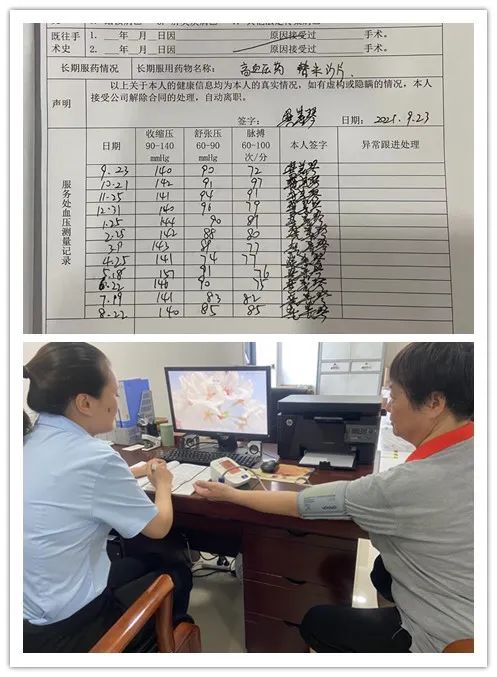 既往手 1. ___年___月 日因 原因接受过 手术。
术史 2. ___年___月 日因 原因接受过 手术。
长期服药情况 长期服用药物名称: 高血压药 替米沙片.
以上关于本人的健康信息均为本人的真实情况,如有虚构或隐瞒的情况,本人
声明 接受公司解除合同的处理,自动离职。
签字: 日期: 2021.9.23
日期 收缩压 90-140 mmHg 舒张压 60-90 mmHg 脉搏 60-100 次/分 本人签字 异常跟进处理
服务处血压测量记录
9.23 140 90 72
10.21 142 91 97
11.25 141 94 91
12.31 140 96 79
1.25 144 90 89
2.25 142 88 80
3.9 143 89 77
4.25 141 74 77
5.18 157 91 76
6.22 146 90 75
7.19 141 83 82
8.22 140 85 85